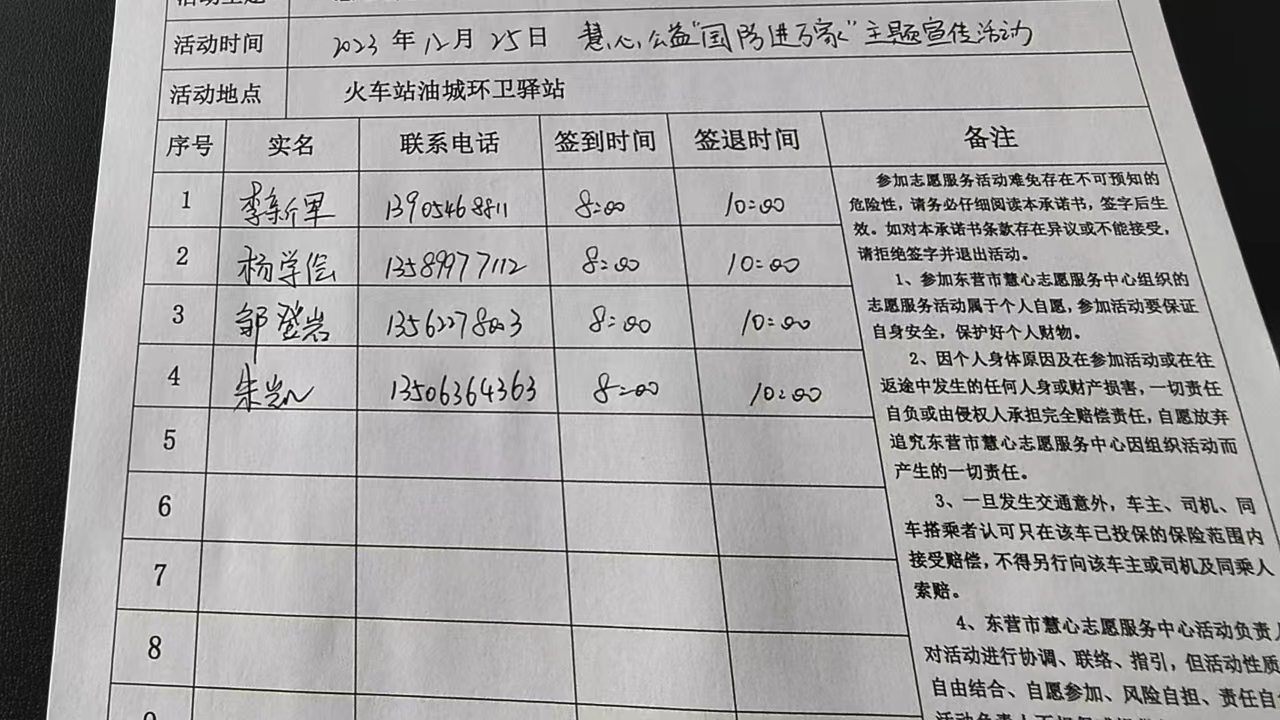 活动时间 2023年12月25日 慧心公益"国防进万家"主题宣传活动
活动地点 火车站油城环卫驿站
序号 实名 联系电话 签到时间 签退时间 备注
1 李新军 13905468811 8:00 10:00
2 杨学信 13589977112 8:00 10:00
3 邹登岩 13562278003 8:00 10:00
4 朱岩 13506364363 8:00 10:00
5
6
7
8
参加志愿服务活动难免存在不可预知的
危险性,请务必仔细阅读本承诺书,签字后生
效。如对本承诺书条款存在异议或不能接受,
请拒绝签字并退出活动。
1、参加东营市慧心志愿服务中心组织的
志愿服务活动属于个人自愿,参加活动要保证
自身安全,保护好个人财物。
2、因个人身体原因及在参加活动或在往
返途中发生的任何人身或财产损害,一切责任
自负或由侵权人承担完全赔偿责任,自愿放弃
追究东营市慧心志愿服务中心因组织活动而
产生的一切责任。
3、一旦发生交通意外,车主、司机、同
车搭乘者认可只在该车已投保的保险范围内
接受赔偿,不得另行向该车主或司机及同乘人
索赔。
4、东营市慧心志愿服务中心活动负责人
对活动进行协调、联络、指引,但活动性质
自由结合、自愿参加、风险自担、责任自